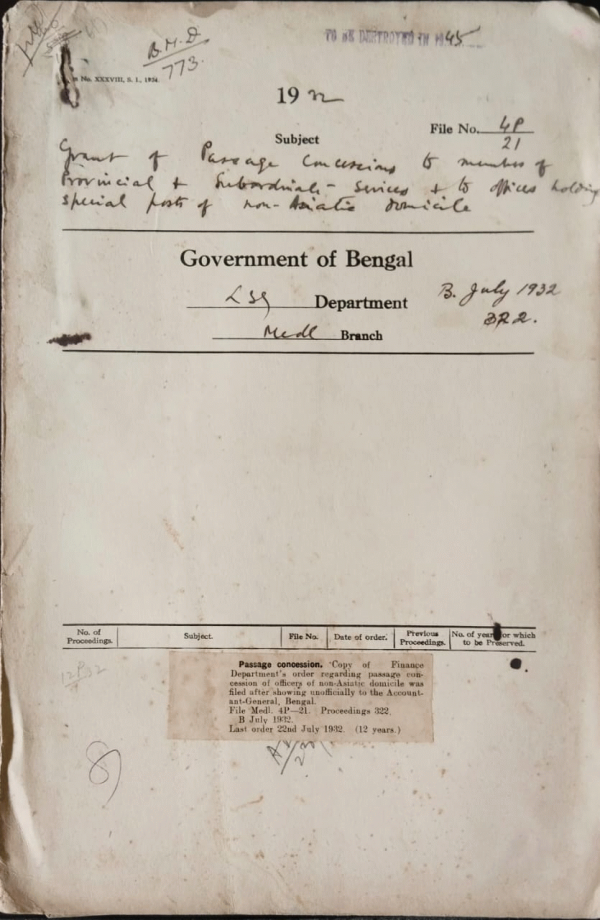 B. M. D
773.
TO BE DESTROYED IN 1945
No. XXXVIII, S. I., 1934.
1932
File No. 4P
21
Subject
Grant of Passage Concessions to member of
Provincial & Subordinate Services & to offices holding
special posts of non-Asiatic domicile
Government of Bengal
LSG Department
B. July 1932
322.
Medl Branch
No. of Proceedings. Subject. File No. Date of order. Previous Proceedings. No. of years for which to be Preserved.
Passage concession. Copy of Finance
Department's order regarding passage con-
cession of officers of non-Asiatic domicile was
filed after showing unofficially to the Account-
ant-General, Bengal.
File Medl. 4P—21. Proceedings 322
B July 1932.
Last order 22nd July 1932. (12 years.)